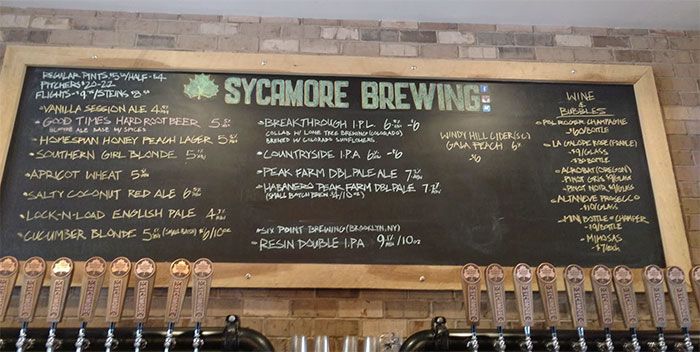 SYCAMORE BREWING
REGULAR PINTS $5 1/2 HALF - $4
PITCHERS $20-22
FLIGHTS - $9 STEINS $8
VANILLA SESSION ALE 4
GOOD TIMES HARD ROOT BEER 5
BLONDE ALE BASE W/ SPICES
HOMESPUN HONEY PEACH LAGER 5
SOUTHERN GIRL BLONDE 5
APRICOT WHEAT 5
SALTY COCONUT RED ALE 6
LOCK-N-LOAD ENGLISH PALE 4
CUCUMBER BLONDE 5 (SMALL BATCH) $6/10oz
BREAKTHROUGH I.P.L. 6 -$6
COLLAB W/ LONE TREE BREWING (COLORADO)
BREWED W/ COLORADO SUNFLOWERS
COUNTRYSIDE I.P.A 6 -$6
PEAK FARM DBL PALE ALE 7
HABANERO PEAK FARM DBL PALE 7
(SMALL BATCH BREW $4/10oz)
SIX POINT BREWING (BROOKLYN, NY)
RESIN DOUBLE I.P.A 9 /10oz
WINDY HILL CIDER (SC)
GALA PEACH 6
$6
WINE
&
BUBBLES
POL ROGER CHAMPAGNE
$60/BOTTLE
LA GALOPE ROSE (FRANCE)
$9/GLASS
$30 BOTTLE
ACROBAT (OREGON)
PINOT GRIS $9/GLASS
PINOT NOIR $9/GLASS
ALTANEVE PROSECCO
$10/GLASS
MINI BOTTLE
$19/BOTTLE
MIMOSAS